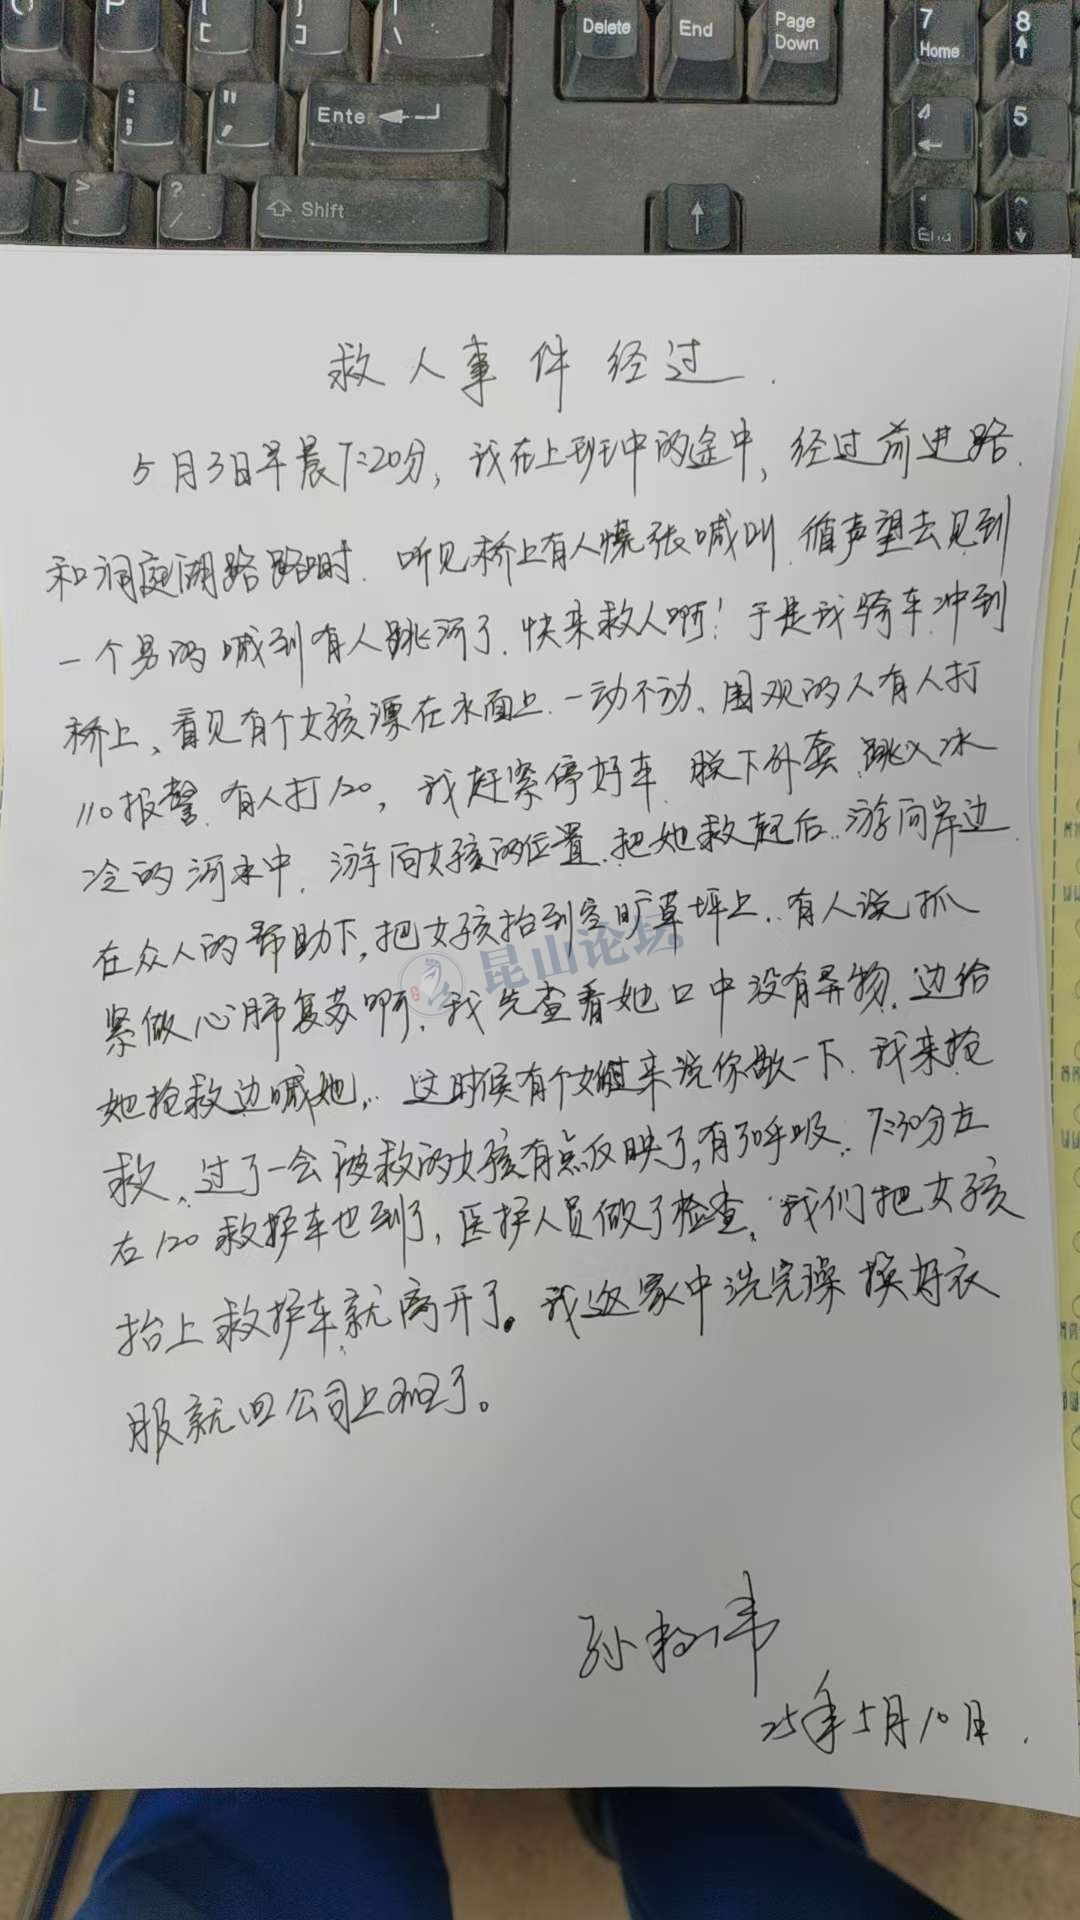 P
{
[
}
]
|
\
Delete
End
Page
Down
7
Home
8
L
:
;
"
,
Enter
4
5
>
.
?
/
Shift
End
救人事件经过.
5月3日早晨7:20分，我在上班中的途中，经过前进路
和洞庭湖路路口时.听见桥上有人慌张喊叫.循声望去见到
一个男的喊到有人跳河了.快来救人啊！于是我骑车冲到
桥上、看见有个女孩漂在水面上.一动不动、围观的人有人打
110报警.有人打120，我赶紧停好车.脱下外套.跳入冰
冷的河水中.游向女孩的位置.把她救起后..游向岸边.
在众人的帮助下，把女孩抬到空旷草坪上..有人说抓
紧做心肺复苏啊，我先查看她口中没有异物.边给
她抢救边喊她..这时候有个女过来说你歇一下.我来抢
救、过了一会被救的女孩有点反映了，有了呼吸.7:30分左
右120救护车也到了，医护人员做了检查，我们把女孩
抬上救护车就离开了。我返家中洗完澡换好衣
服就回公司上班了。
孙
25年5月10日.
昆山论坛